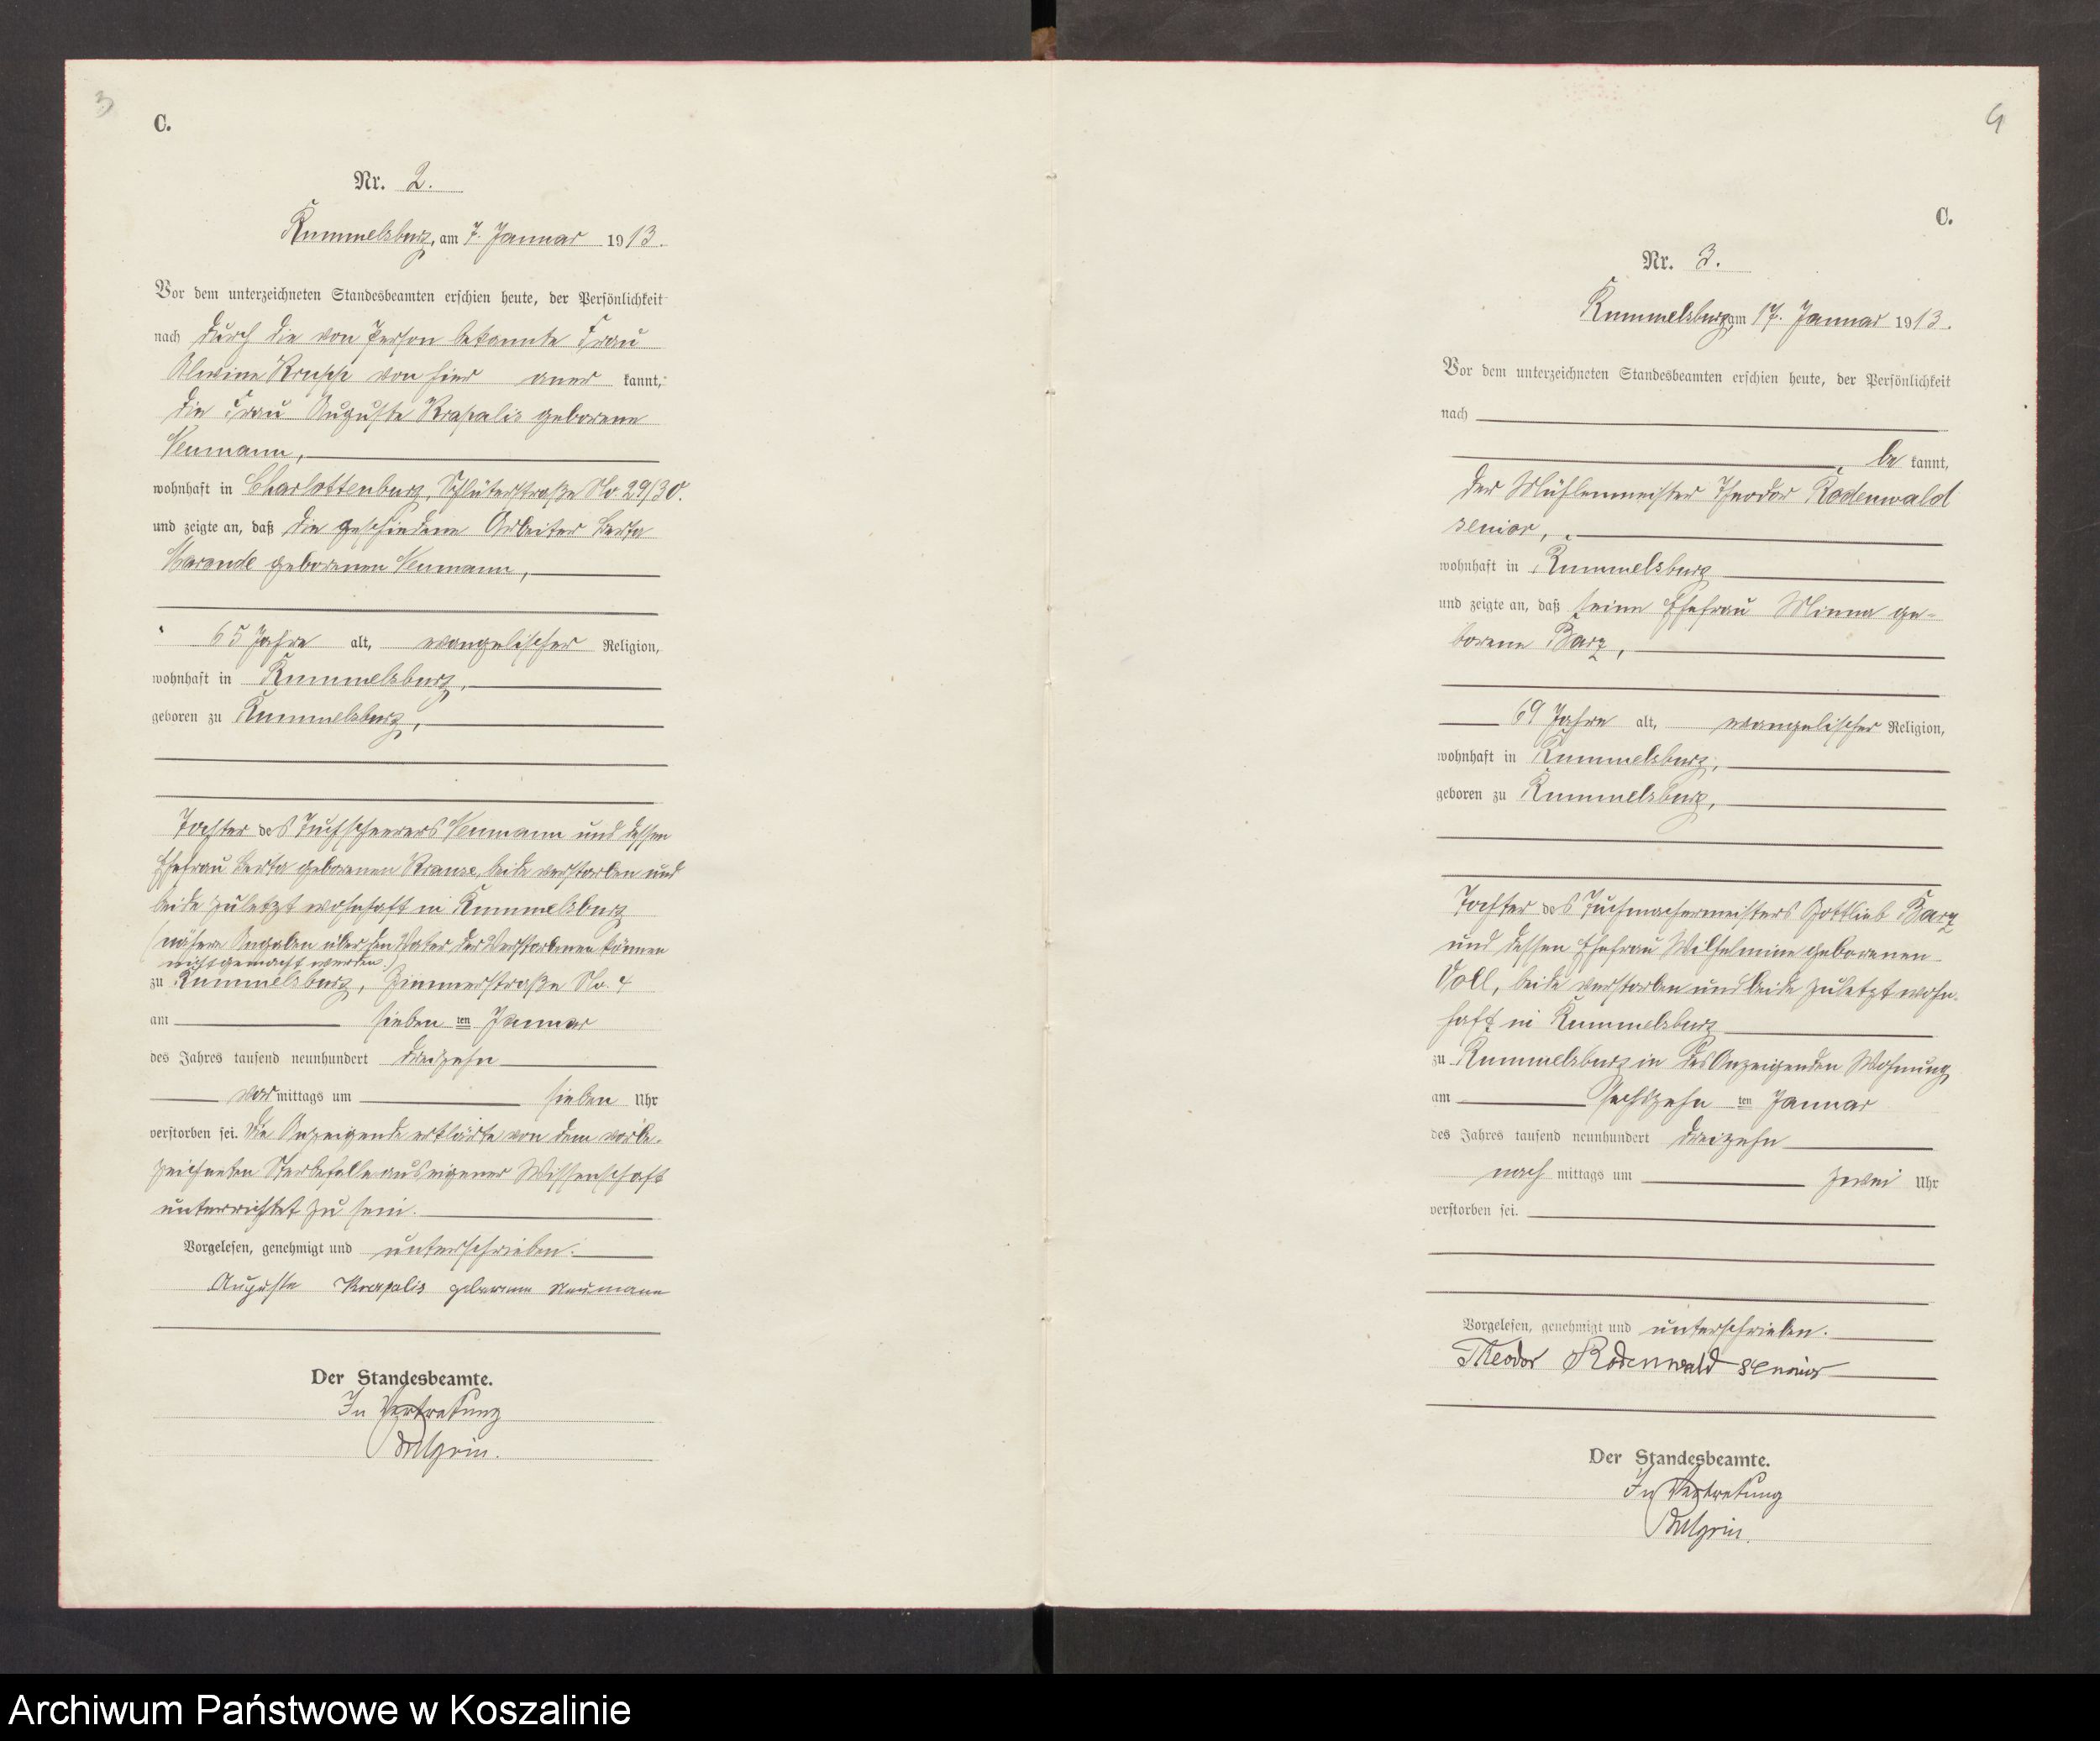 3
C.
Nr. 2.
Rummelsburg, am 7. Januar 1913.
Vor dem unterzeichneten Standesbeamten erschien heute, der Persönlichkeit
nach durch die von Person bekannte Frau
Alwine von hier aner kannt,
die Frau Auguste Krapalis geborene
Neumann,
wohnhaft in Charlottenburg, Schlüterstraße No. 29/30.
und zeigte an, daß die geschiedene Arbeiter Berta
geborenen Neumann,
65 Jahre alt, evangelischer Religion,
wohnhaft in Rummelsburg,
geboren zu Rummelsburg,
Tochter des Tuchscheerers Neumann und dessen
Ehefrau Berta geborenen Krause, beide verstorben und
beide zuletzt wohnhaft in Rummelsburg
(nähere Angaben über den Vater der Verstorbenen können
nicht gemacht werden.)
zu Rummelsburg, Zimmerstraße No. 4
am sieben ten Januar
des Jahres tausend neunhundert dreizehn
vor mittags um sieben Uhr
verstorben sei. Die Anzeigende erklärte von dem vorbe-
zeichneten Sterbefalle aus eigener Wissenschaft
unterrichtet zu sein.
Vorgelesen, genehmigt und unterschrieben.
Auguste Krapalis geborene Neumann
Der Standesbeamte.
In Vertretung
4
C.
Nr. 3.
Rummelsburg, am 17. Januar 1913.
Vor dem unterzeichneten Standesbeamten erschien heute, der Persönlichkeit
nach
be kannt,
der Mühlenmeister Theodor Rodenwald
senior,
wohnhaft in Rummelsburg
und zeigte an, daß seine Ehefrau Minna ge-
borene Barz,
69 Jahre alt, evangelischer Religion,
wohnhaft in Rummelsburg,
geboren zu Rummelsburg,
Tochter des Tuchmachermeisters Gottlieb Barz
und dessen Ehefrau Wilhelmine geborenen
Voll, beide verstorben und beide zuletzt wohn-
haft in Rummelsburg
zu Rummelsburg in des Anzeigenden Wohnung
am sechszehn ten Januar
des Jahres tausend neunhundert dreizehn
nach mittags um zwei Uhr
verstorben sei.
Vorgelesen, genehmigt und unterschrieben.
Theodor Rodenwald senior
Der Standesbeamte.
In Vertretung
Archiwum Państwowe w Koszalinie